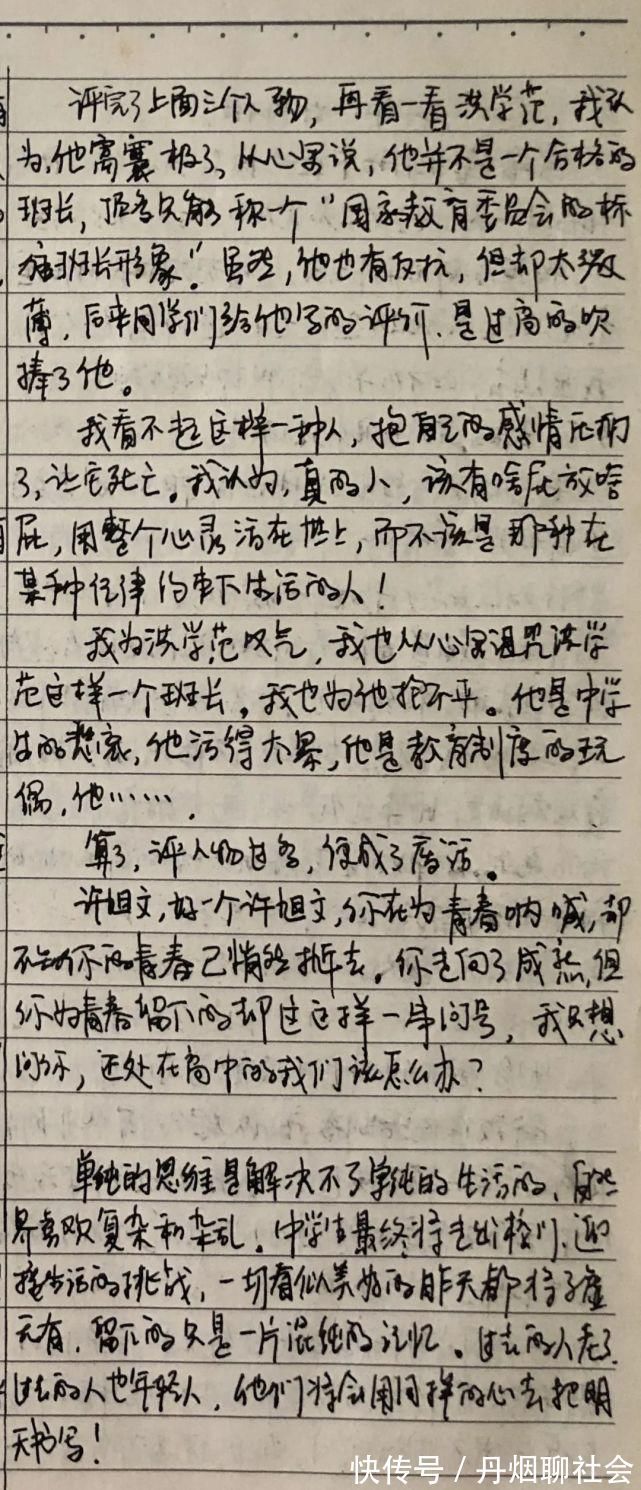 评完了上面三个人物，再看一看洪学范，我认
为，他窝囊极了，从心里说，他并不是一个合格的
班长，顶多只能称一个“国家教育委员会的标
准班长形象”。虽然，他也有反抗，但却太微
薄，后来同学们给他写的评价，是过高的吹
捧了他。
我看不起这样一种人，把自己的感情压抑
了，让它死亡。我认为，真的人，该有啥屁放啥
屁，用整个心灵活在世上，而不该是那种在
某种任律约束下生活的人！
我为洪学范叹气，我也从心里诅咒洪学
范这样一个班长，我也为他抱不平。他是中学
生的悲哀，他活得太累，他是教育制度的玩
偶，他……．
算了，评人物过多，便成了废话。
许旭文，好一个许旭文，你在为青春呐喊，却
不知你的青春已悄然掷去。你走向了成熟，但
你为青春留下的却这样一串问号，我只想
问你，还处在高中的我们该怎么办？
单纯的思维是解决不了单纯的生活的，自然
界喜欢复杂和杂乱。中学生最终将走出校门，迎
接生活的挑战，一切看似美好的昨天都将子虚
无有，留下的只是一片混纯的记忆。过去的人老了，
过去的人也年轻人，他们将会用同样的心去把明
天书写！
快传号 / 丹烟聊社会